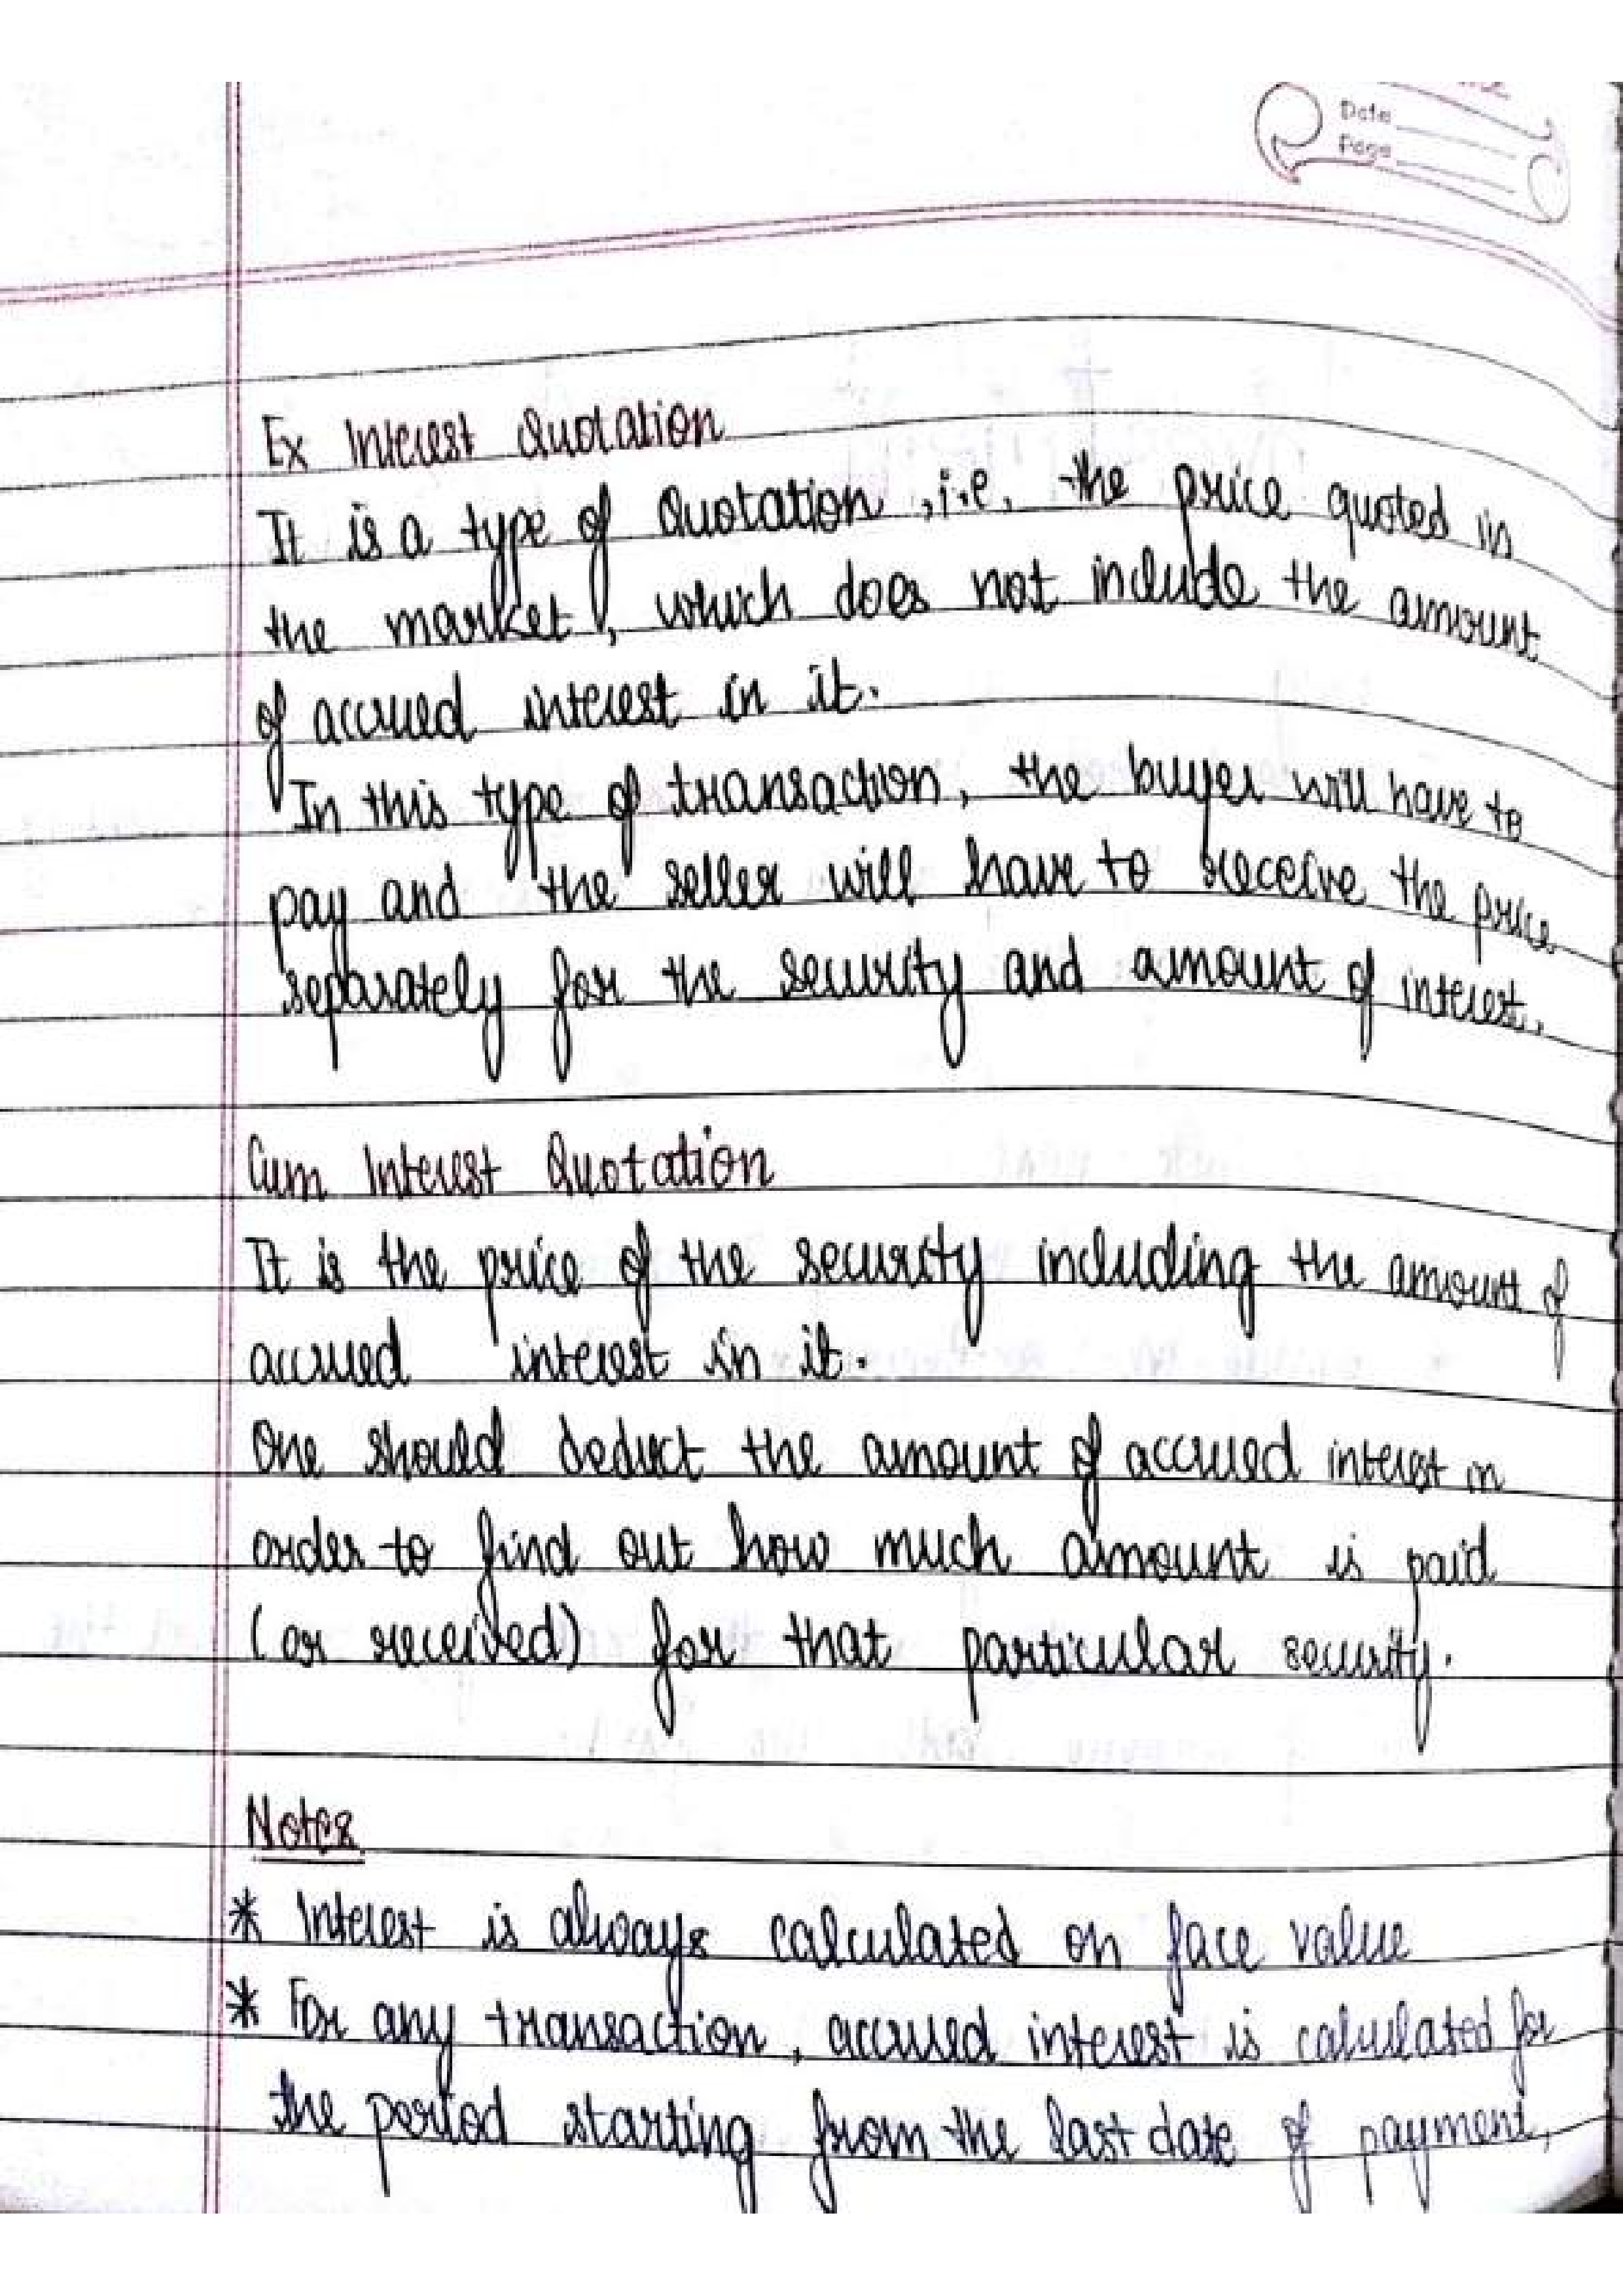 Date
Page
Ex Interest Quotation
It is a type of Quotation, i.e. the price quoted in
the market, which does not include the amount
of accrued interest in it.
In this type of transaction, the buyer will have to
pay and the seller will have to receive the price
separately for the security and amount of interest.
Cum Interest Quotation
It is the price of the security including the amount of
accrued interest in it.
One should deduct the amount of accrued interest in
order to find out how much amount is paid
(or received) for that particular security.
Notes
* Interest is always calculated on face value
* For any transaction, accrued interest is calculated for
the period starting from the last date of payment,